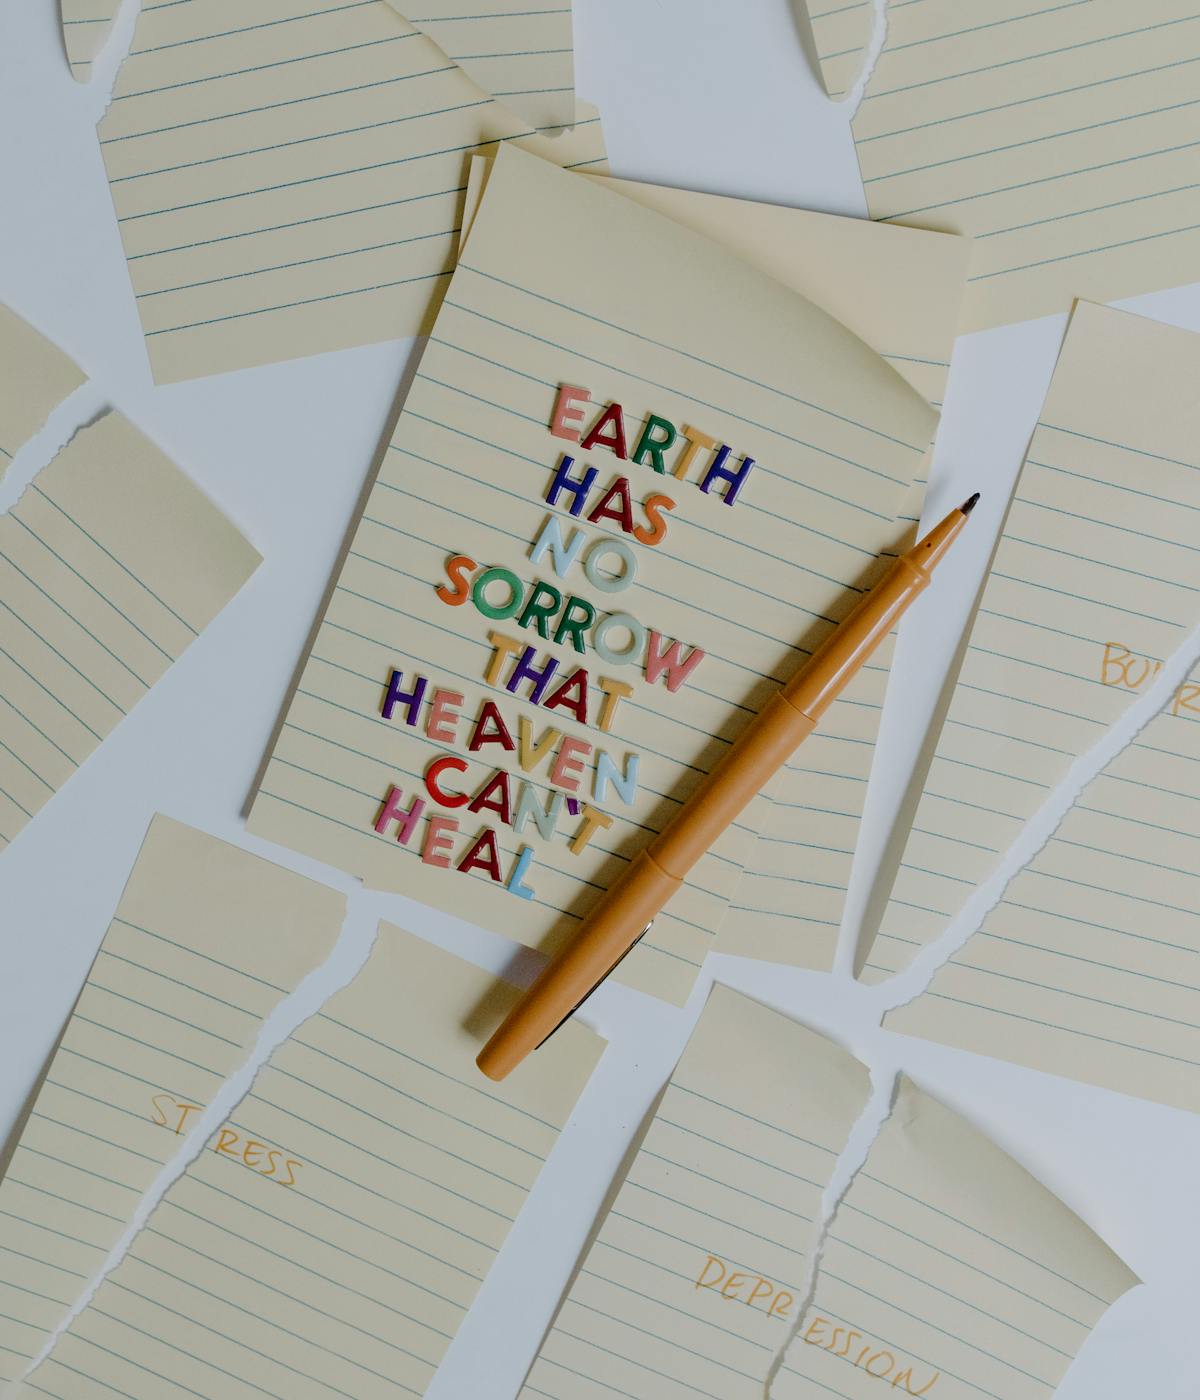 EARTH
HAS
NO
SORROW
THAT
HEAVEN
CAN'T
HEAL
STRESS
DEPRESSION